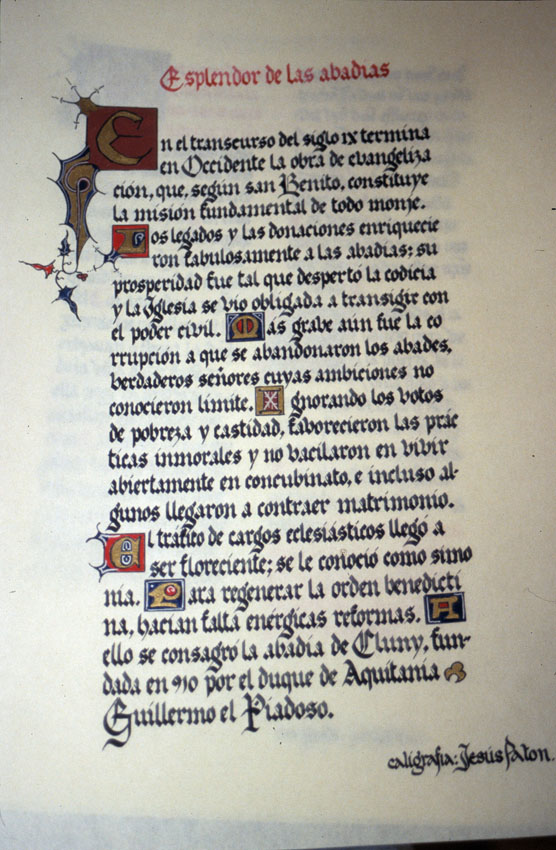 Esplendor de las abadias
En el transcurso del siglo IX termina
en Occidente la obra de evangeliza
ción, que, según san Benito, constituye
la misión fundamental de todo monje.
Los legados y las donaciones enriquecie
ron fabulosamente a las abadias; su
prosperidad fue tal que despertó la codicia
y la Iglesia se vio obligada a transigir con
el poder civil. Más grave aún fue la co
rrupción a que se abandonaron los abades,
verdaderos señores cuyas ambiciones no
conocieron límite. Ignorando los votos
de pobreza y castidad, favorecieron las prác
ticas inmorales y no vacilaron en vivir
abiertamente en concubinato, e incluso al-
gunos llegaron a contraer matrimonio.
El tráfico de cargos eclesiásticos llegó a
ser floreciente; se le conoció como simo
nia. Para regenerar la orden benedicti
na, hacían falta enérgicas reformas. A
ello se consagró la abadia de Cluny, fun-
dada en 910 por el duque de Aquitania
Guillermo el Piadoso.
caligrafia: Jesús Paton.